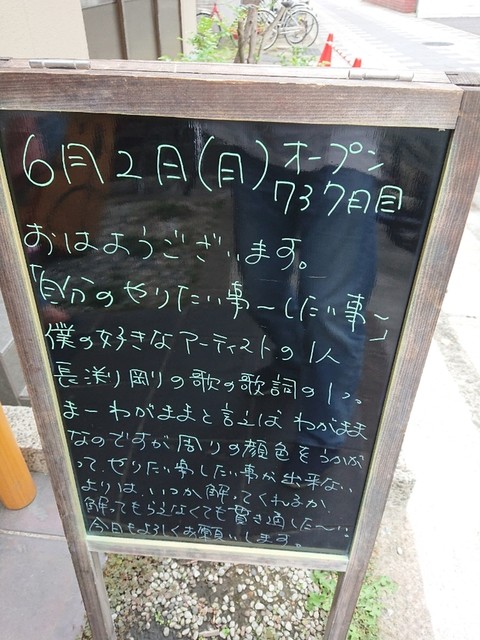 6月2日(日) オープン
737日目
おはようございます。
「自分のやりたい事〜したい事〜」
僕の好きなアーティストの1人
長渕 剛の歌の歌詞の1つ。
まーわがままと言えば わがまま
なのですが 周りの顔色をうかが
って、やりたい事したい事が出来ない
よりは、いつか解ってくれるか、
解ってもらえなくても貫き通した〜い。
今日もよろしくお願いします。